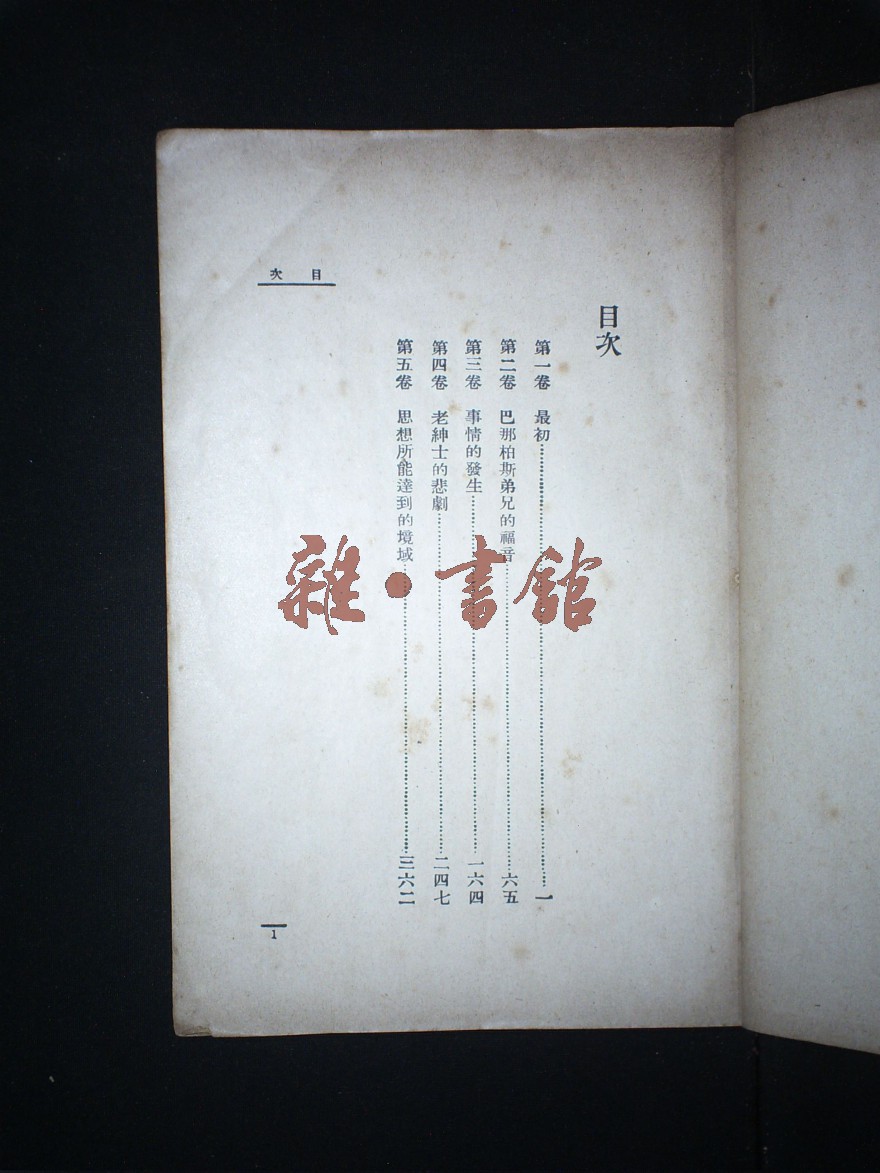 目次
目次
第一卷　最初……一
第二卷　巴那柏斯弟兄的福音……六五
第三卷　事情的發生……一六四
第四卷　老紳士的悲劇……二四七
第五卷　思想所能達到的境域……三六二
1
雜·書館